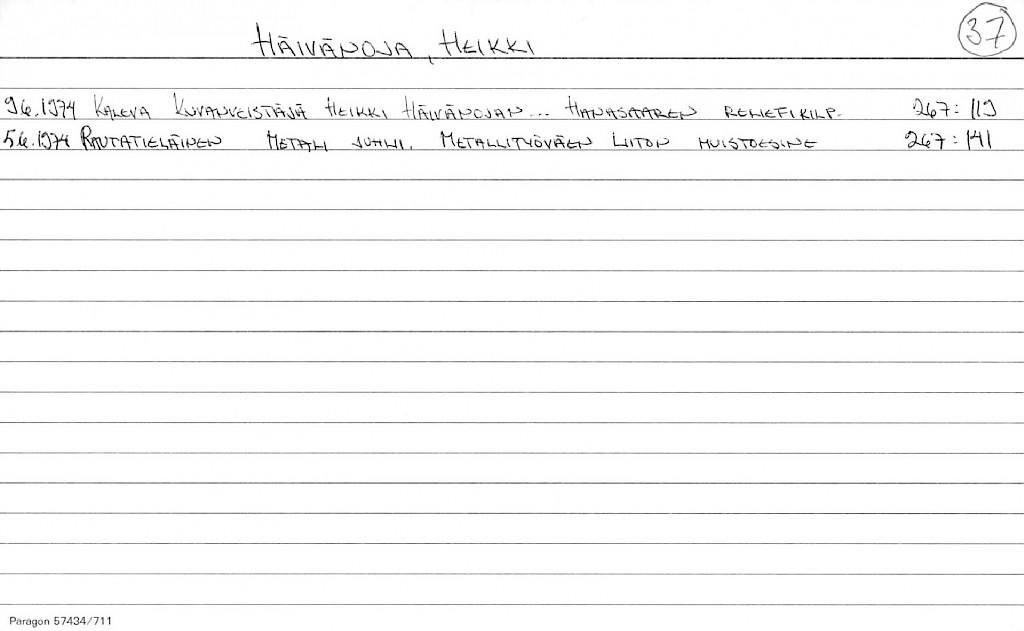 HÄIVÄNOJA, HEIKKI
37
9.6.1974 KALEVA KUVANVEISTÄJÄ HEIKKI HÄIVÄNOJAN... HANASAAREN RELIEFIKILP. 267:119
5.6.1974 RAUTATIELÄINEN METALLI JUHLI. METALLITYÖVÄEN LIITON MUISTOESINE 267:141
Paragon 57434/711